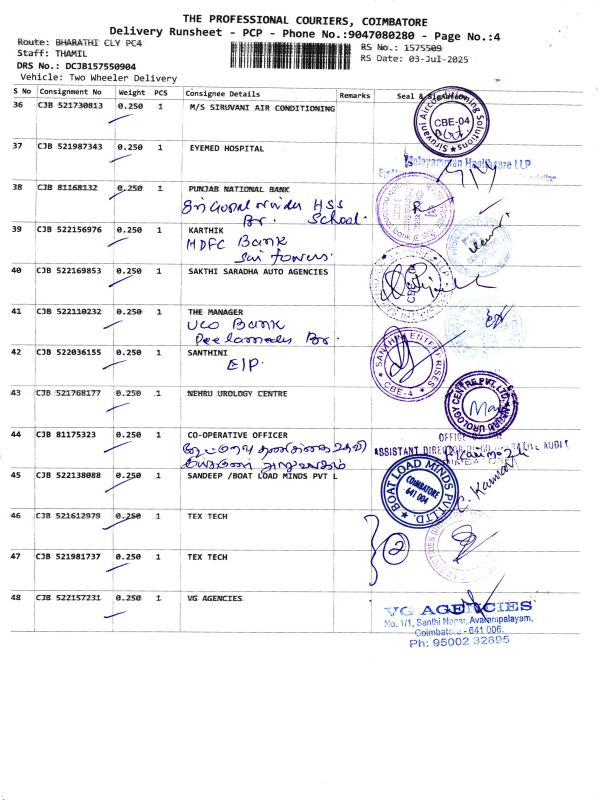 THE PROFESSIONAL COURIERS, COIMBATORE
Delivery Runsheet - PCP - Phone No.:9047080280 - Page No.:4
Route: BHARATHI CLY PC4
RS No.: 1575509
Staff: THAMIL
RS Date: 03-Jul-2025
DRS No.: DCJB157550904
Vehicle: Two Wheeler Delivery
S No Consignment No Weight PCS Consignee Details Remarks Seal & Signature
36 CJB 521730813 0.250 1 M/S SIRUVANI AIR CONDITIONING
Siruvani Airconditioning Solutions CBE-04
37 CJB 521987343 0.250 1 EYEMED HOSPITAL
Healthcare LLP
38 CJB 81168132 0.250 1 PUNJAB NATIONAL BANK
HSS
Br. School.
39 CJB 522156976 0.250 1 KARTHIK
HDFC Bank
Sai Towers.
40 CJB 522169853 0.250 1 SAKTHI SARADHA AUTO AGENCIES
41 CJB 522110232 0.250 1 THE MANAGER
UCO Bank
Peelamedu Br.
42 CJB 522036155 0.250 1 SANTHINI
E/P.
SANTHINI ENTERPRISES CBE-4
43 CJB 521768177 0.250 1 NEHRU UROLOGY CENTRE
NEHRU UROLOGY CENTRE PVT. LTD.
44 CJB 81175323 0.250 1 CO-OPERATIVE OFFICER
ASSISTANT DIRECTOR AUDIT
45 CJB 522138088 0.250 1 SANDEEP /BOAT LOAD MINDS PVT L
BOAT LOAD MINDS PVT.LTD. COIMBATORE 641 004
46 CJB 521612979 0.250 1 TEX TECH
2
47 CJB 521981737 0.250 1 TEX TECH
48 CJB 522157231 0.250 1 VG AGENCIES
VG AGENCIES
No. 1/1, Santhi Nagar, Avarampalayam,
Coimbatore - 641 006.
Ph: 95002 32695